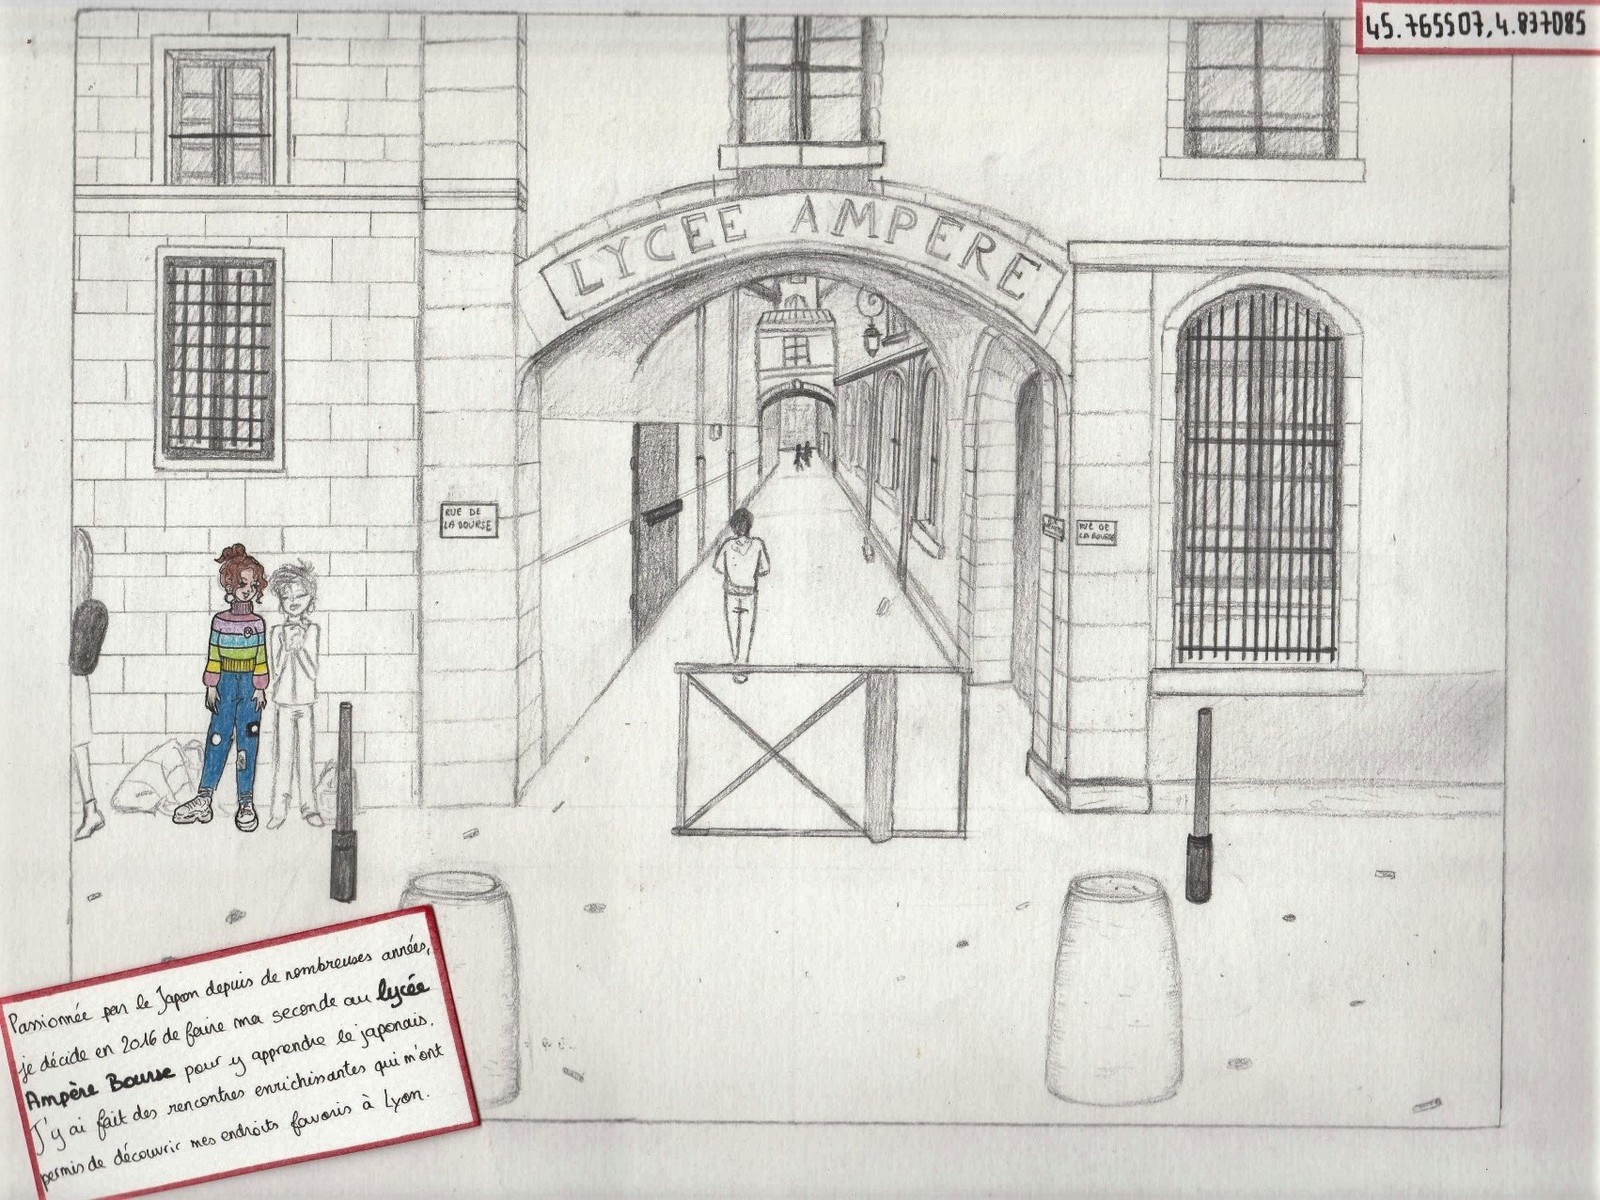 45.765507,4.837085
LYCEE AMPERE
RUE DE
LA BOURSE
RUE DE
LA BOURSE
Passionnée par le Japon depuis de nombreuses années,
je décide en 2016 de faire ma seconde au lycée
Ampère Bourse pour y apprendre le japonais.
J'y ai fait des rencontres enrichissantes qui m'ont
permis de découvrir mes endroits favoris à Lyon.